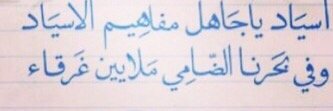 أسيَاد ياجَاهل مفاهِيم الاسيَاد
وفي بَحرنا الضَّامِي مَلايين غَرقاء